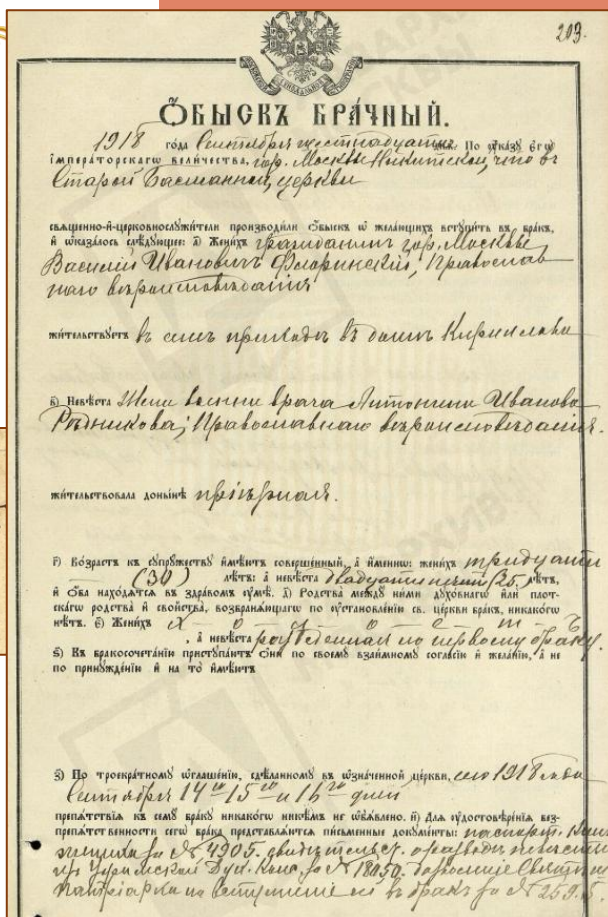 203.
Ѻбыскъ брачный.
1918 года Сентября шестнадцатаго дня. По указу Егѡ
Імператорскагѡ Величества, гор. Москвы Никитской, что въ
Старой Басманной, церкви
священно-й-церковнослужители производили Ѻбыскъ ѡ желающихъ вступить въ бракъ,
й ѡказалось слѣдующее: а҃) Женихъ гражданинъ гор. Москвы
Василій Ивановичъ Флоринскій, Православ
наго вѣроисповѣданія
жительствуетъ въ семъ приходѣ въ домѣ Кирилова
в҃) Невѣста Жена врача Антонина Иванова
Рѣдникова; Православнаго вѣроисповѣданія.
жительствовала донынѣ
г҃) Возрастъ къ супружеству имѣютъ совершенный, а именнѡ: женихъ тридцати
(30) лѣтъ: а невѣста двадцати пяти (25) лѣтъ,
й Ѻба находятся въ здравомъ оумѣ. д҃) Родства между ними духовнагѡ или плот-
скагѡ родства й свойства, возбраняющагѡ по оустановленію св. церкви бракъ, никакогѡ
нѣтъ. є҃) Женихъ Х о л о с т ъ
, а невѣста разведенная по первому браку.
ѕ҃) Къ бракосочетанію приступаютъ Ѻни по своему взаимному согласію й желанію, а не
по принужденію й на то имѣютъ
з҃) По троекратному ѡглашенію, сдѣланному въ ѡзначенной церкви, сего 1918 года
Сентября 14го 15го и 16го дней
препятствія къ сему браку никакогѡ никѣмъ не ѡбъявлено. и҃) Для оудостовѣренія без-
препятственности сегѡ брака представляются письменные документы: паспорт
за № 4905. свидѣтельст. о разводѣ невѣсты
Дух. Конс. за № 18050. дозволеніе Святѣйш.
Патріарха на вступленіе ей въ бракъ за № 2595.